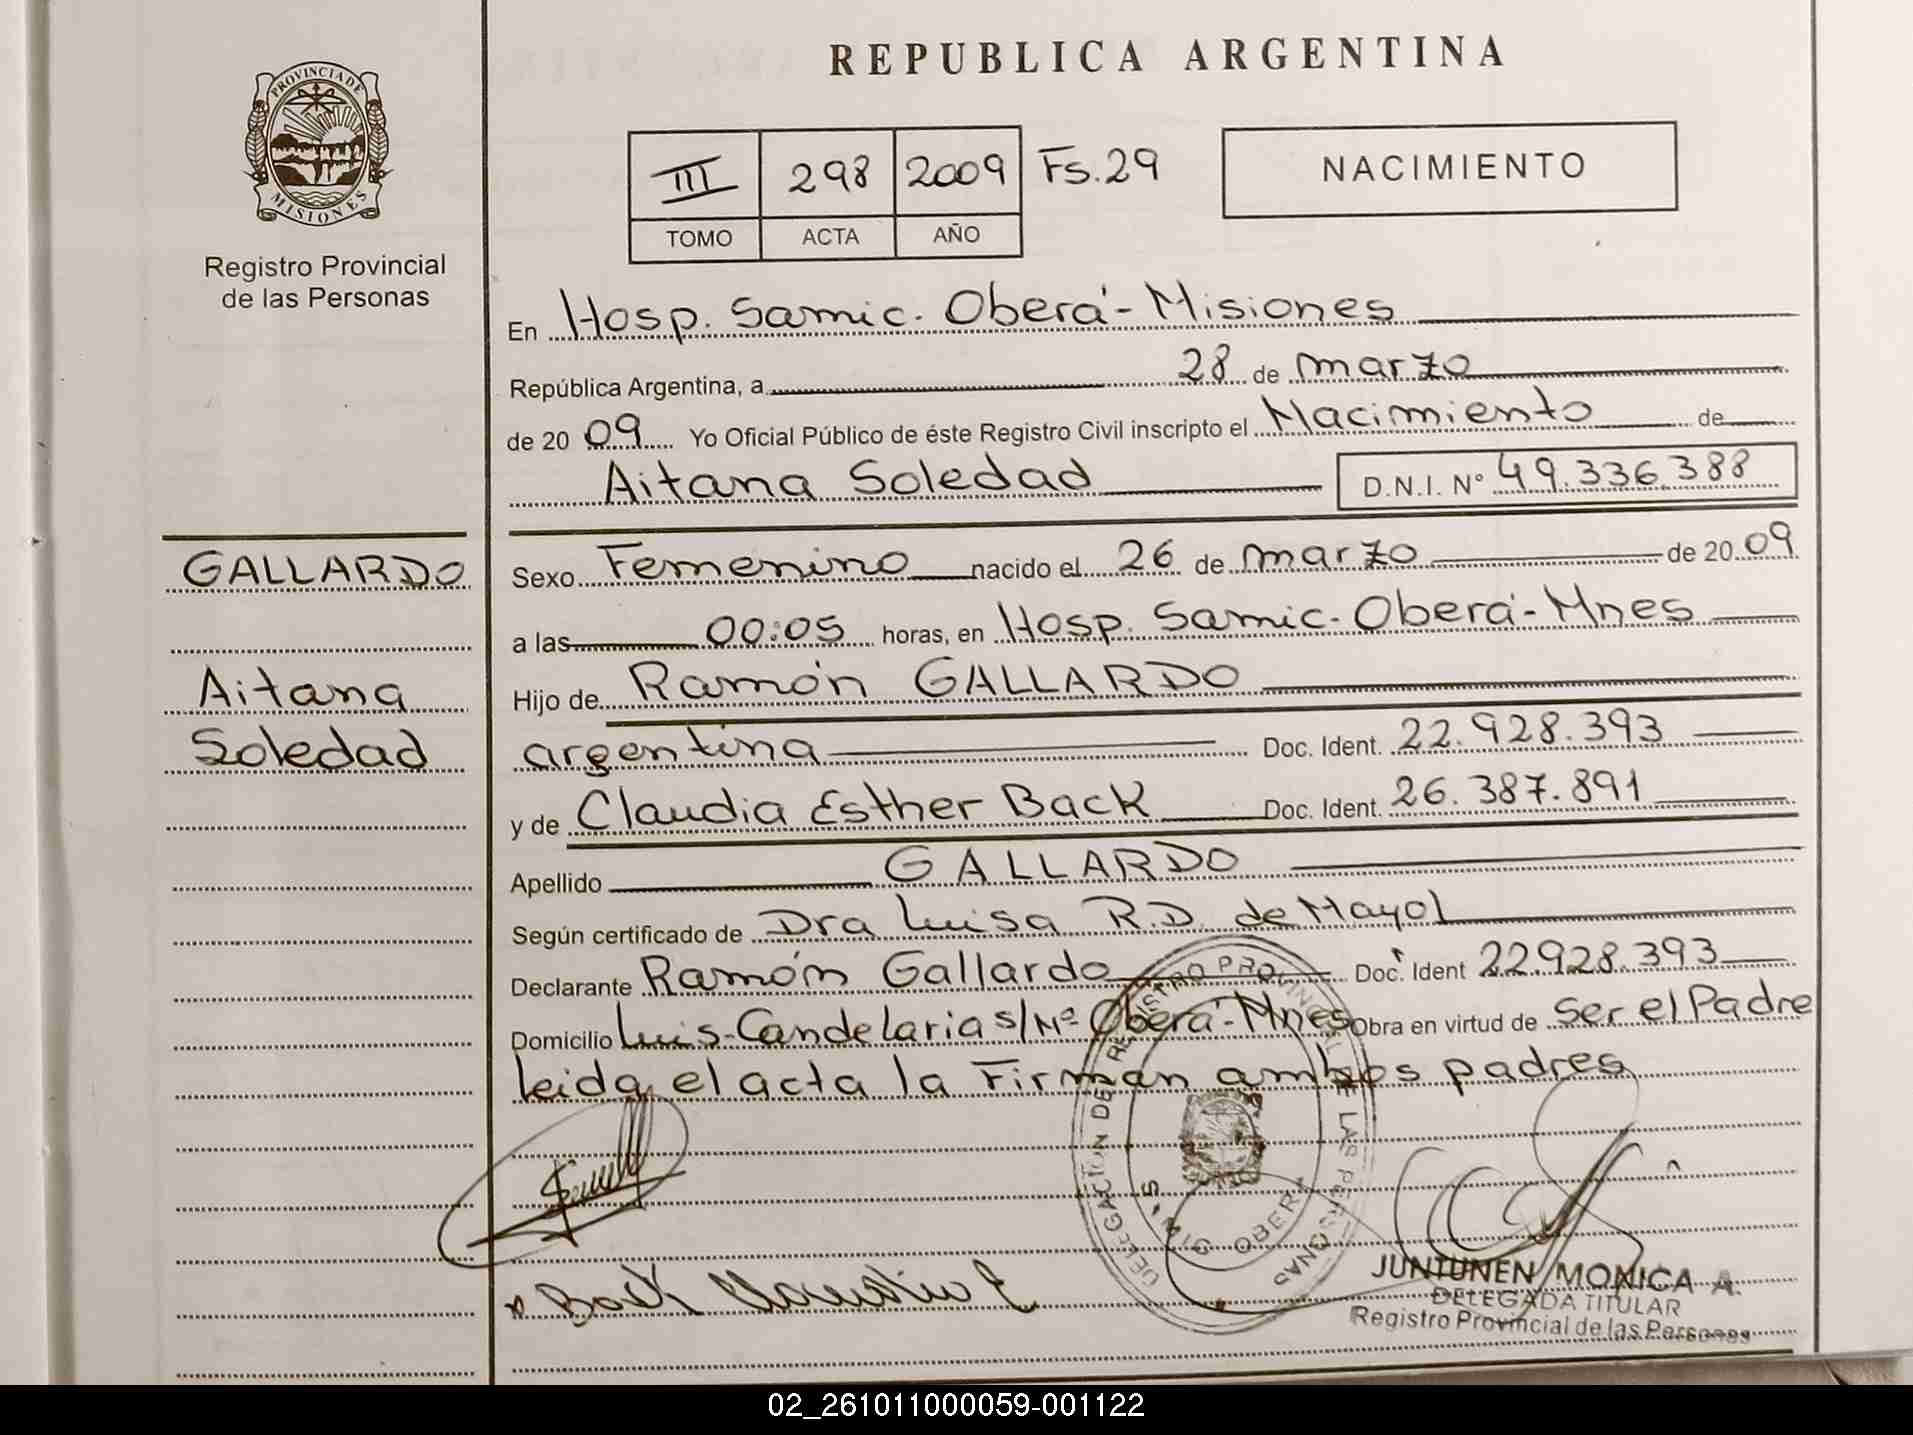 REPUBLICA ARGENTINA
PROVINCIA DE MISIONES
Registro Provincial
de las Personas
III 298 2009 Fs. 29
TOMO ACTA AÑO
NACIMIENTO
En Hosp. Samic. Oberá - Misiones
República Argentina, a 28 de marzo
de 20 09 Yo Oficial Público de éste Registro Civil inscripto el Nacimiento de
Aitana Soledad D.N.I. N° 49.336.388
GALLARDO
Aitana
Soledad
Sexo Femenino nacido el 26 de marzo de 20 09
a las 00:05 horas, en Hosp. Samic. Oberá - Mnes
Hijo de Ramón GALLARDO
argentina Doc. Ident. 22.928.393
y de Claudia Esther Back Doc. Ident. 26.387.891
Apellido GALLARDO
Según certificado de Dra Luisa R.D. de Mayol
Declarante Ramón Gallardo Doc. Ident 22.928.393
Domicilio Luis-Candelaria s/Nº Oberá - Mnes Obra en virtud de Ser el Padre
leida el acta la Firman ambos padres
DELEGACION DEL REGISTRO PROVINCIAL DE LAS PERSONAS
OBERA
Back
JUNTUNEN MONICA A.
DELEGADA TITULAR
Registro Provincial de las Personas
02_261011000059-001122